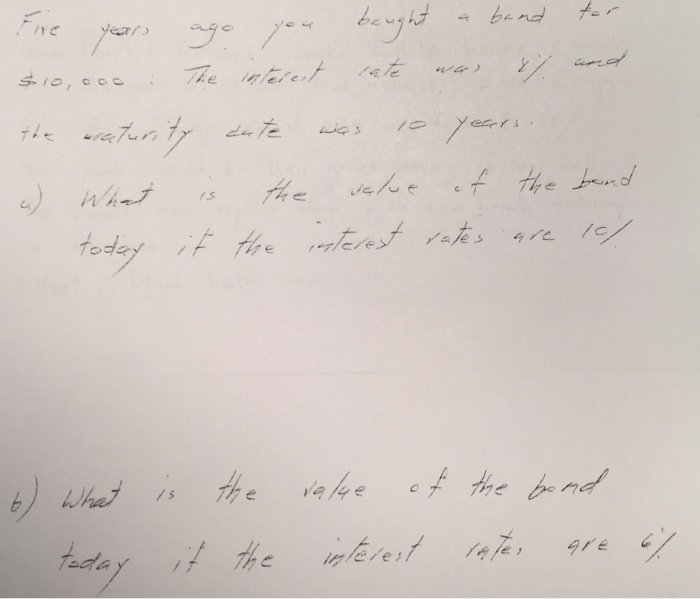 Five years ago you bought a bond for
$10,000. The interest rate was 8% and
the maturity date was 10 years.
a) What is the value of the bond
today if the interest rates are 10%
b) What is the value of the bond
today if the interest rates are 6%